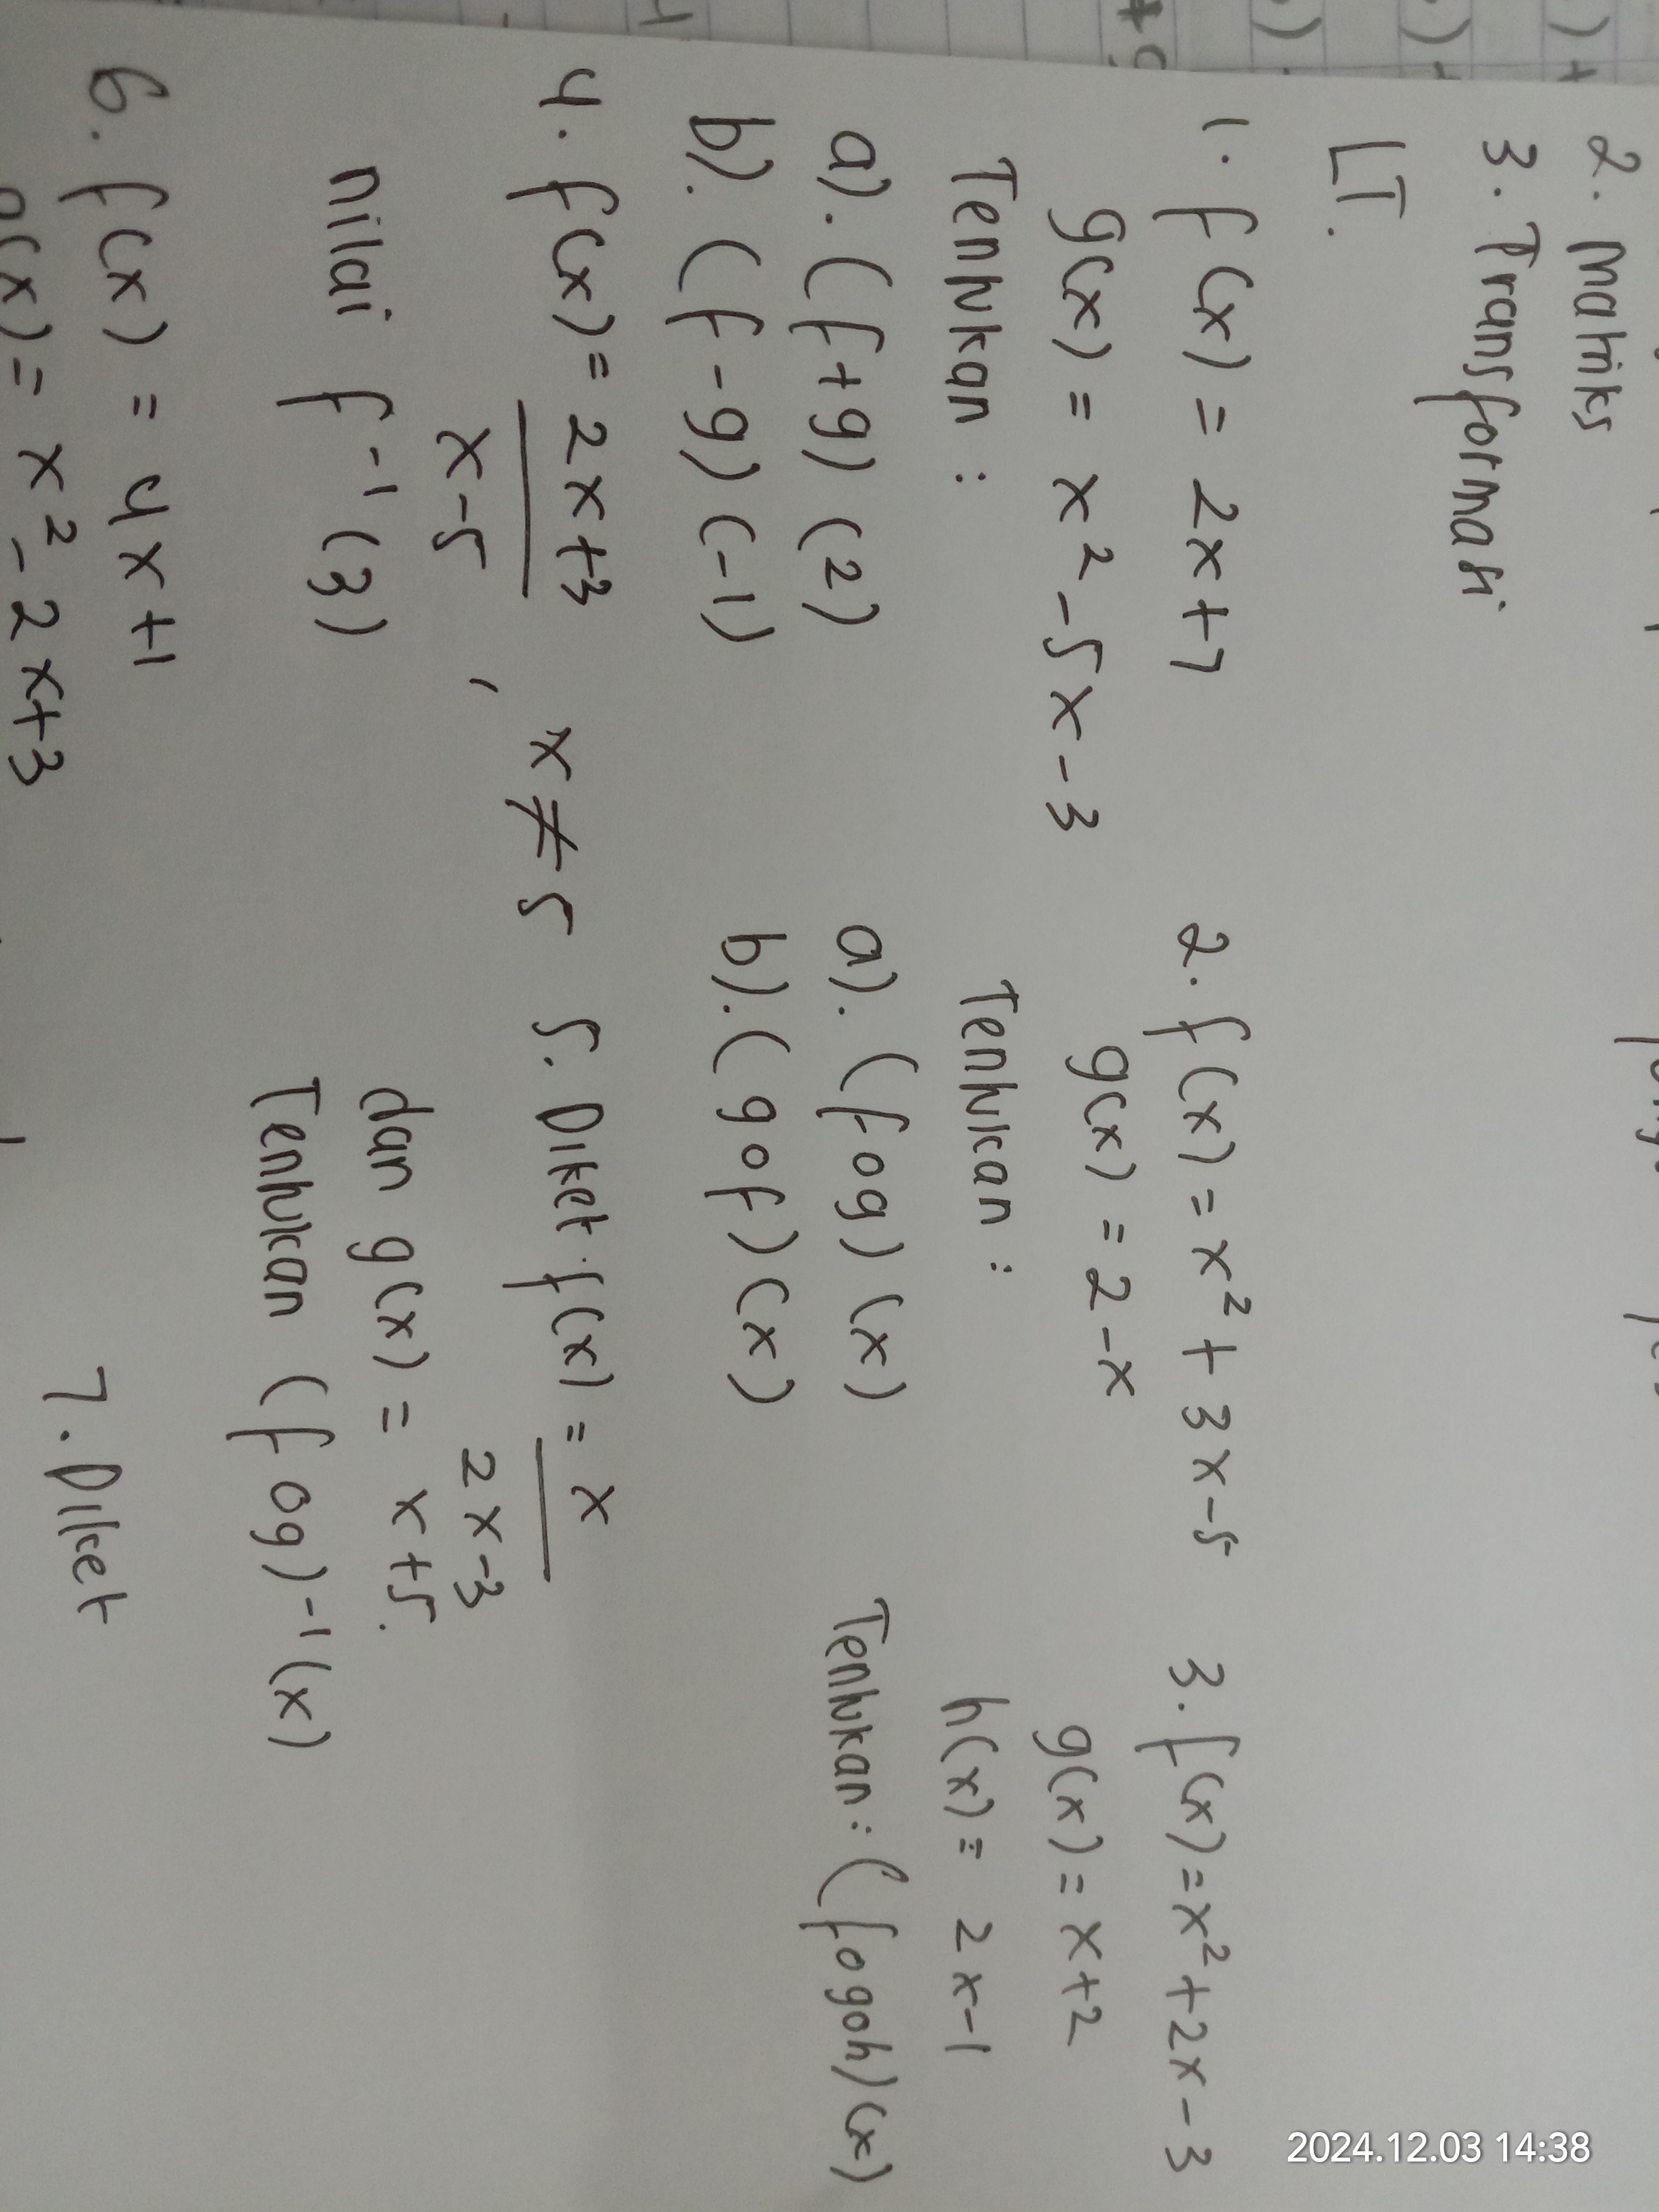 2. Matriks
3. Transformasi
LT.
1. f(x) = 2x+7
g(x) = x² - 5x - 3
Tentukan :
a). (f+g) (2)
b). (f-g) (-1)
2. f(x) = x² + 3x - 5
g(x) = 2 - x
Tentukan :
a). (fog) (x)
b). (gof) (x)
3. f(x) = x² + 2x - 3
g(x) = x+2
h(x) = 2x-1
Tentukan : (fogoh) (x)
4. f(x) = 2x+3
x-5 , x ≠ 5
nilai f⁻¹ (3)
5. Diket. f(x) = x
2x-3
dan g(x) = x+5.
Tentukan (fog)⁻¹(x)
6. f(x) = 4x+1
g(x) = x² - 2x+3
7. Diket
2024.12.03 14:38